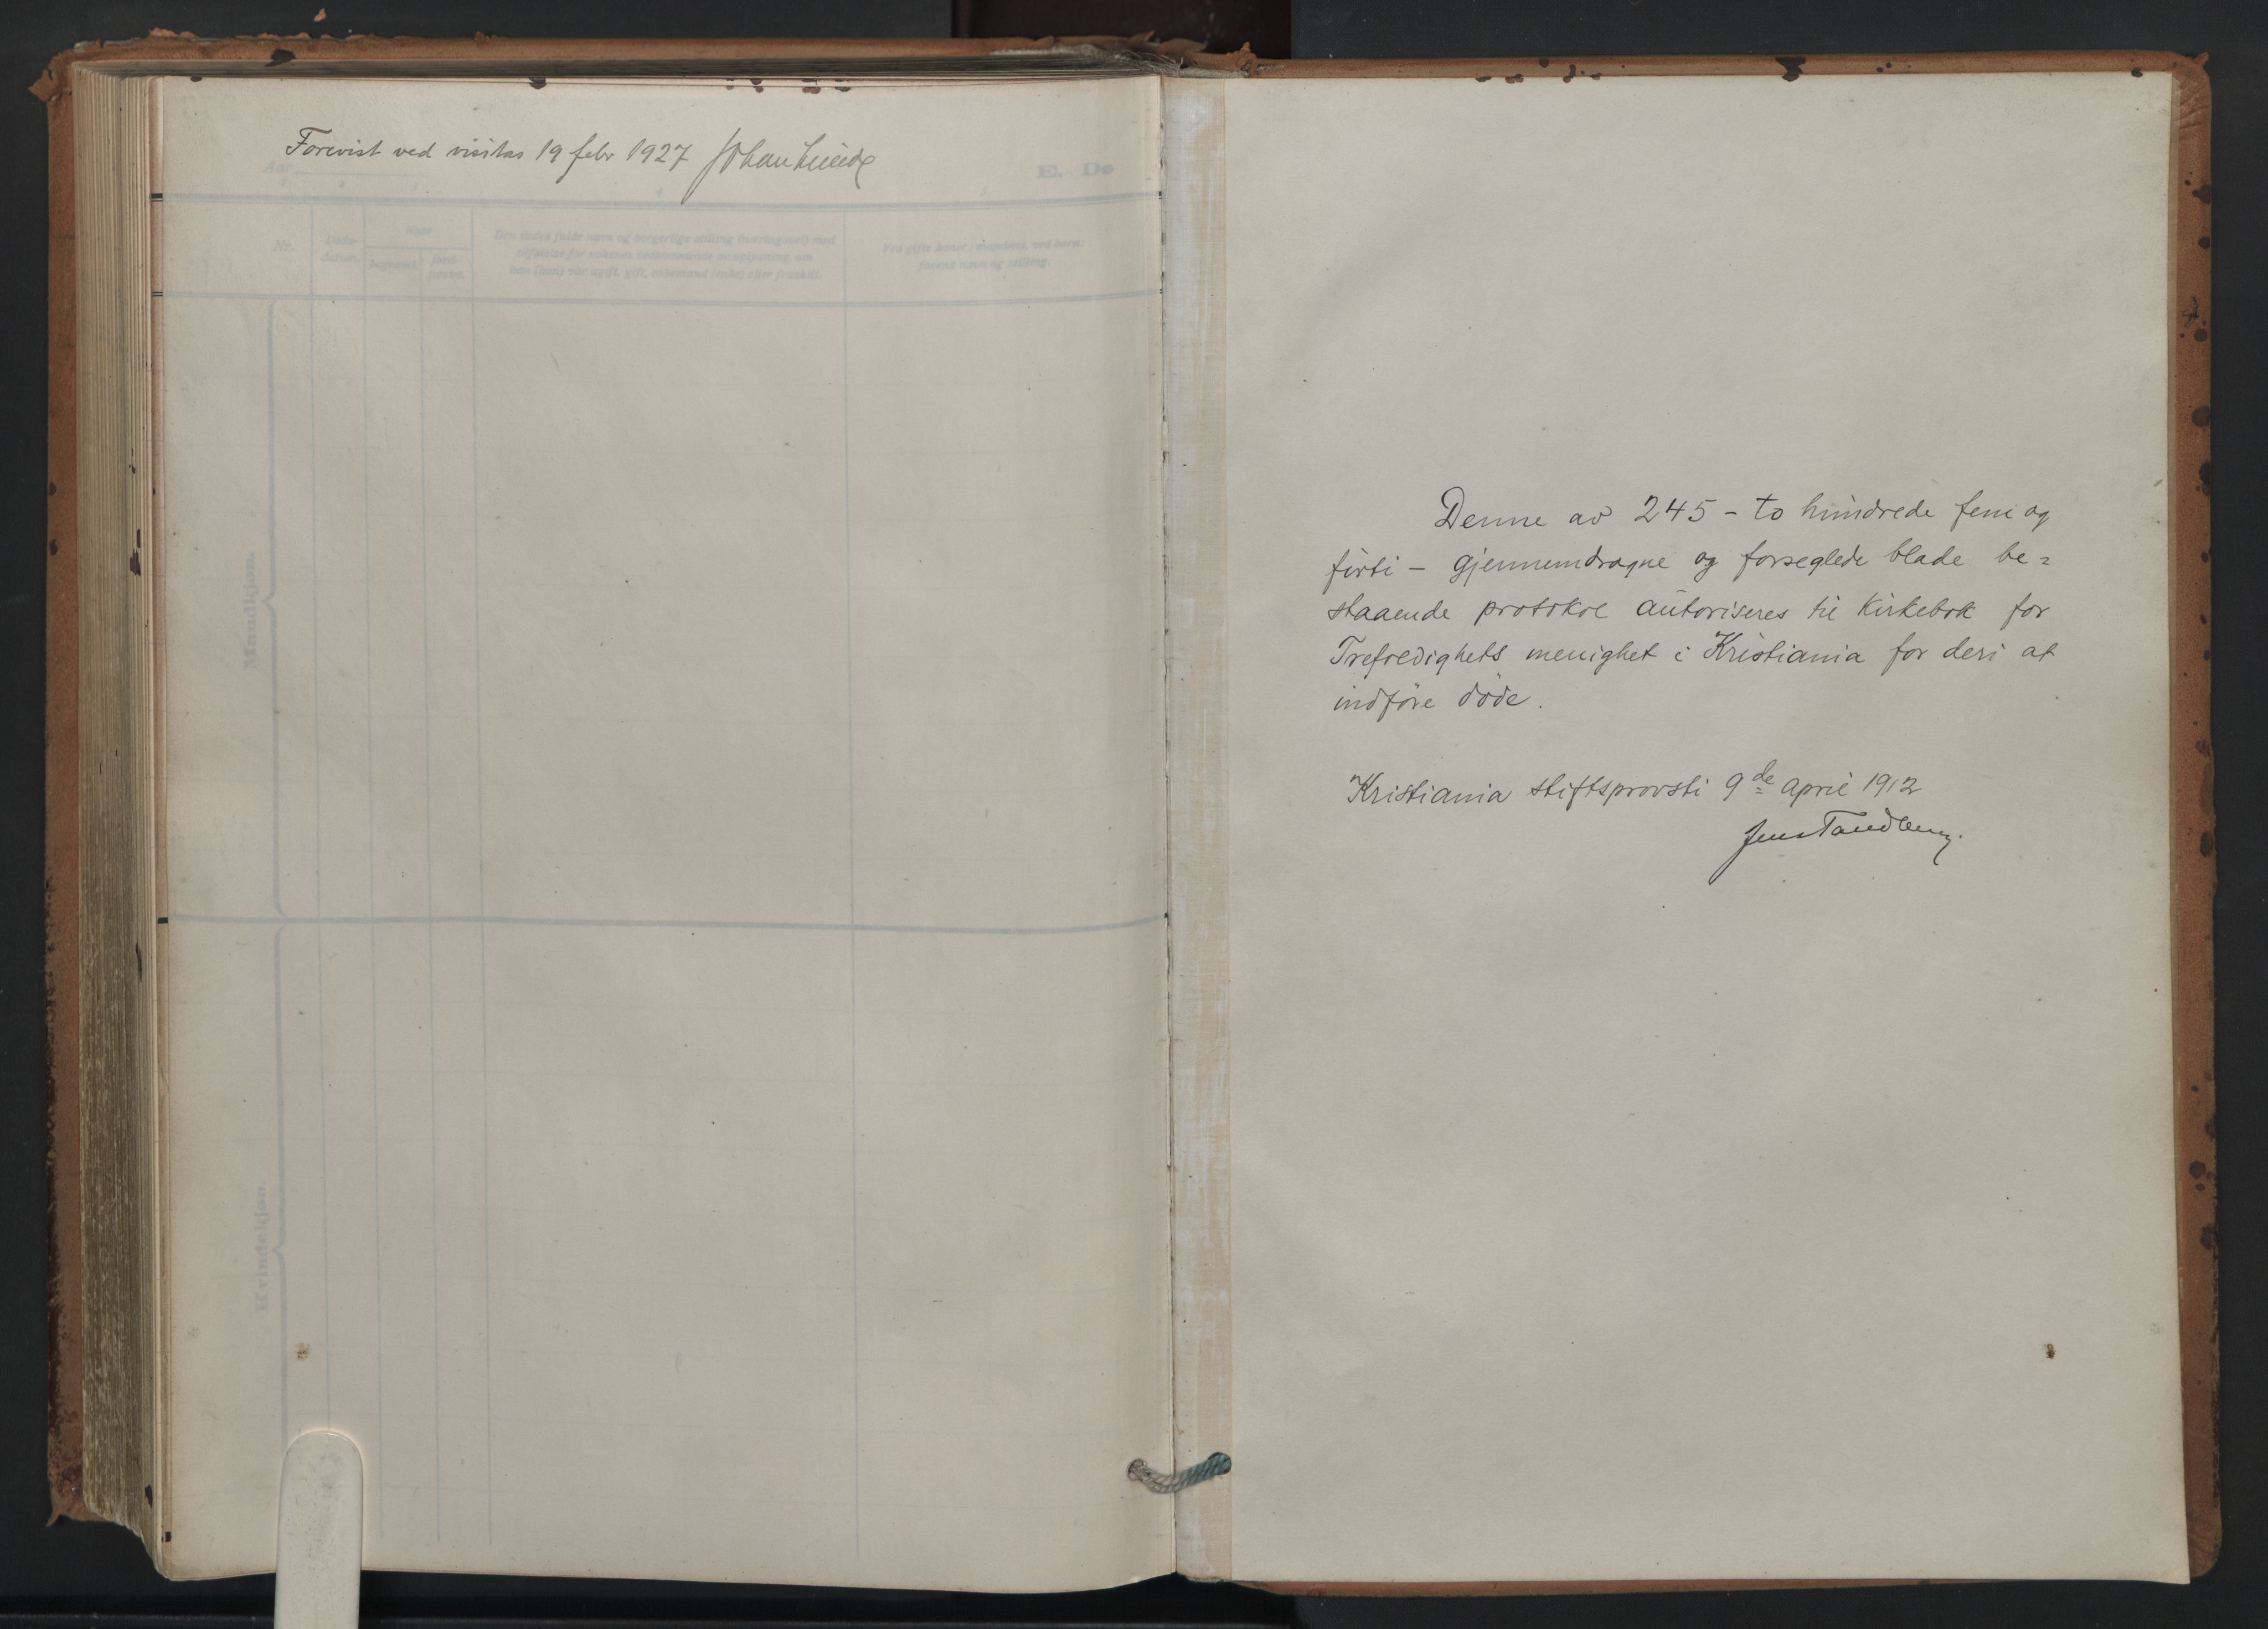 Forevist ved visitas 19 febr 1927 Johan Lunde
Aar
E. Dø
Nr.
Døds-
datum.
Naar
begravet.
jord-
fæstet.
Den dødes fulde navn og borgerlige stilling (næringsvei) med
tilføielse for voksnes vedkommende av oplysning, om
han (hun) var ugift, gift, enkemand (enke) eller fraskilt.
Ved gifte koner: mandens, ved børn:
farens navn og stilling.
Mandkjøn.
Kvindekjøn.
Denne av 245 – to hundrede fem og
førti – gjennemdragne og forseglede blade be=
staaende protokol autoriseres til Kirkebok for
Trefoldighets menighet i Kristiania for deri at
indføre døde.
Kristiania stiftsprovsti 9de april 1912
Jens Tandberg.